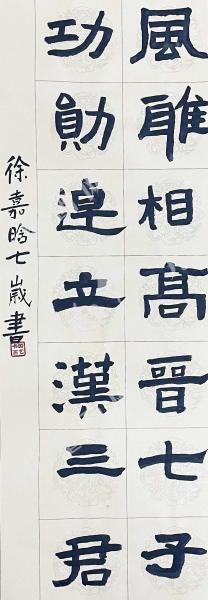 風雅相髙晉七子
功勛卓立漢三君
徐嘉晗七歲書